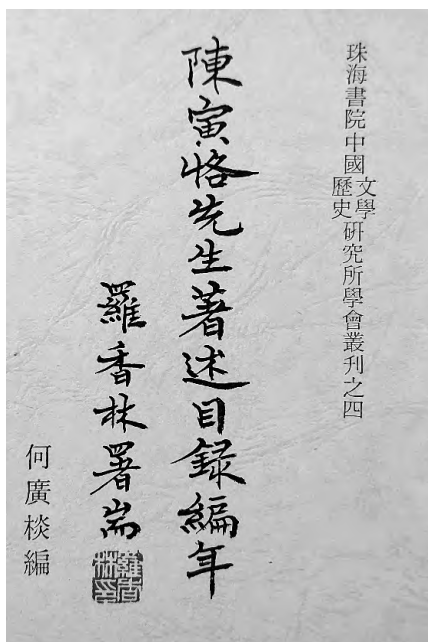 珠海書院中國文學歷史研究所學會叢刊之四
陳寅恪先生著述目録編年
羅香林署耑
羅香林印
何廣棪編